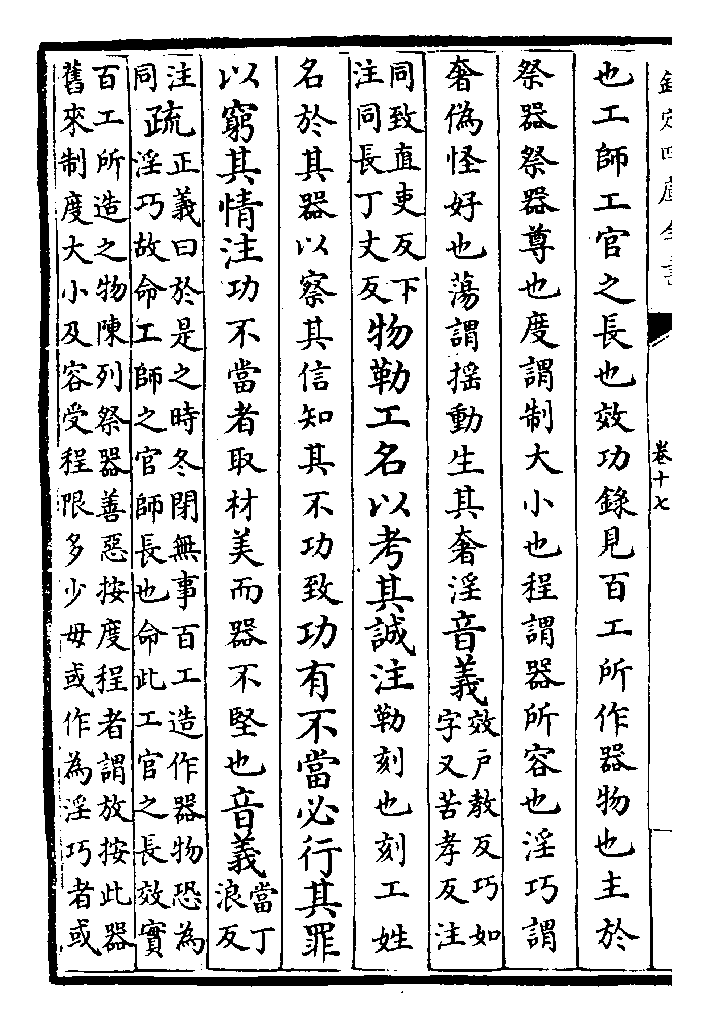 欽定四庫全書
卷十七
也工師工官之長也效功錄見百工所作器物也主於
祭器祭器尊也度謂制大小也程謂器所容也淫巧謂
奢偽怪好也蕩謂揺動生其奢淫音義效户教反巧如
字又苦孝反注
同致直吏反下
注同長丁丈反物勒工名以考其誠注勒刻也刻工姓
名於其器以察其信知其不功致功有不當必行其罪
以窮其情注功不當者取材美而器不堅也音義當丁
浪反
注
同疏正義曰於是之時冬閉無事百工造作器物恐為
淫巧故命工師之官師長也命此工官之長效實
百工所造之物陳列祭器善惡按度程者謂放按此器
舊來制度大小及容受程限多少毋或作為淫巧者或